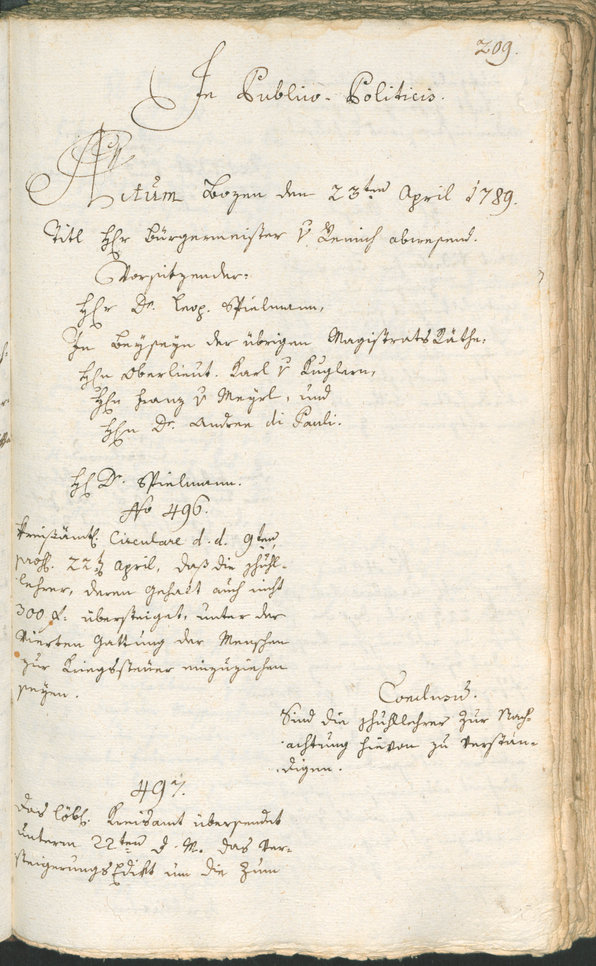 209.
In Publico-Politicis.
Actum Bozen den 23ten April 1789.
Titl HHr Bürgermeister v Remich abwesend.
Vorsitzender:
HHr Dr. Leop. Spielmann,
In Beyseyn der übrigen Magistrats Räthe,
HHn Oberlieut. Karl v Kuglern,
HHn Franz v Meyrl, und
HHn Dr. Andree di Pauli.
HH Dr. Spielmann.
No 496.
Kreißämtl. Circulare d. d. 9ten
22t April, daß die Schuhl-
lehrer, deren Gehalt auch nicht
300 f. übersteiget, unter der
Vierten Gattung der Menschen
zur Kriegssteuer einzuziehen
seyen.
Conclusum.
Sind die Schuhllehrer zur Nach-
achtung hievon zu verstän-
digen.
497.
Das löbl. Kreisamt übersendet
unterm 22ten d. M. das Ver-
steigerungs Edikt um die zum